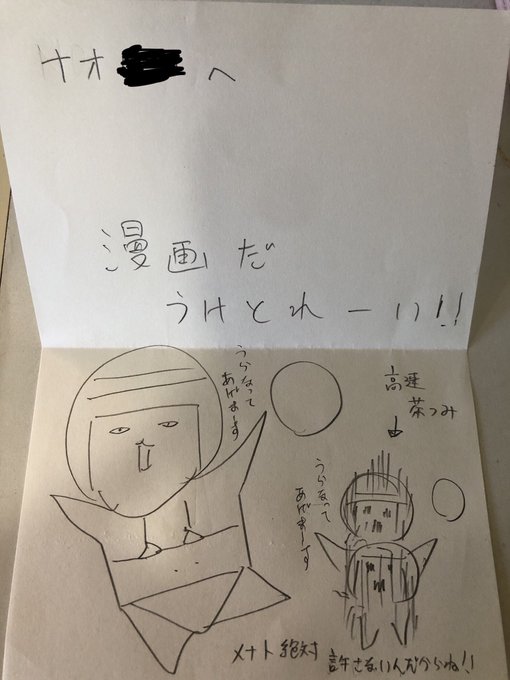 ナオ
へ
漫画だ
うけとれーい!!
うらなって
あげまーす
高速
茶つみ
うらなって
あげまーす
メナト絶対
許さないんだからね!!